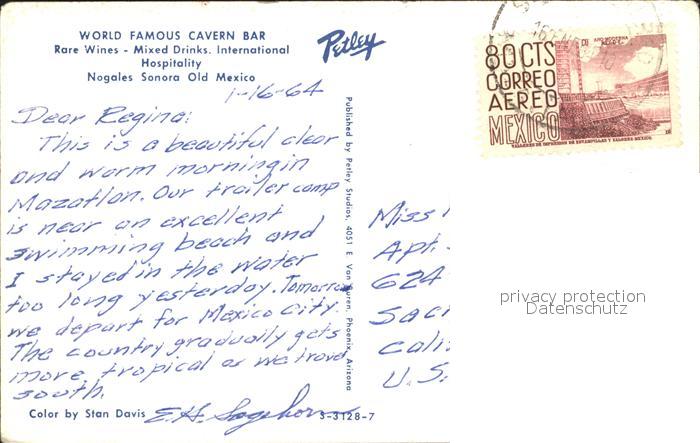 WORLD FAMOUS CAVERN BAR
Rare Wines - Mixed Drinks. International
Hospitality
Nogales Sonora Old Mexico
Petley
1-16-64
Dear Regina:
This is a beautiful clear
and warm morning in
Mazatlan. Our trailer camp
is near an excellent
swimming beach and
I stayed in the water
too long yesterday. Tomorrow
we depart for Mexico City.
The country gradually gets
more tropical as we travel
south.
Color by Stan Davis
3-3128-7
Published by Petley Studios, 4051 E Van Buren, Phoenix, Arizona
80 CTS
CORREO
AEREO
MEXICO
ARQ. MODERNA
TALLERES DE IMPRESION DE ESTAMPILLAS Y VALORES MEXICO.
Miss
Apt.
624
Sac
Cali
U.S.
privacy protection
Datenschutz